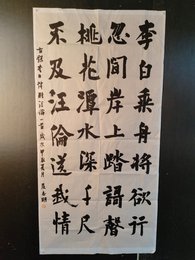 李白乘舟將欲行
忽聞岸上踏謌聲
桃花潭水深千尺
不及汪倫送我情